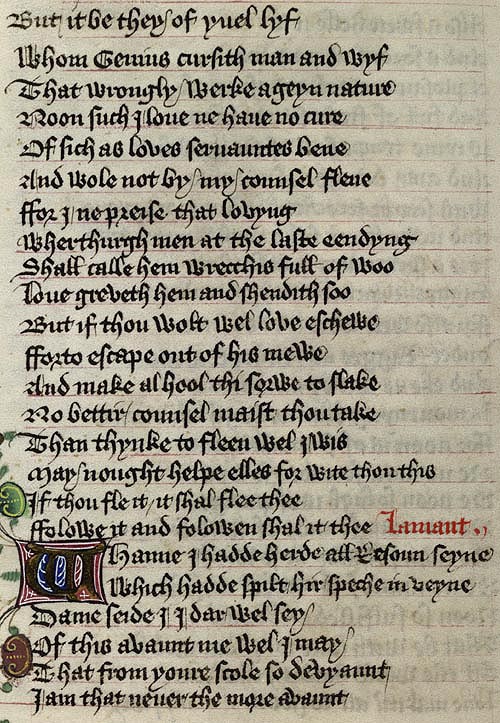 But it be they of yuel lyf
Whom Genius cursith man and wyf
That wrongly werke ageyn nature
Noon such I loue ne haue no cure
Of sich as loves seruauntes bene
And wole not by my counsel flene
ffor I ne preise that lovyng
Wherthurgh men at the laste eendyng
Shall calle hem wrecchis full of woo
Loue greveth hem and shendith soo
But if thou wolt wel love eschewe
fforto escape out of his mewe
And make al hool thi sorwe to slake
No bettir counsel maist thou take
Than thynke to fleen wel iwis
May nought helpe elles for wite thou this
If thou fle it it shal flee thee
ffolowe it and folowen shal it thee Lamant
Whanne I hadde herde all Resoun seyne
Which hadde spilt hir speche in veyne
Dame seide I I dar wel sey
Of this avaunt me wel I may
That from youre scole so devyaunt
I am that never the more avaunt